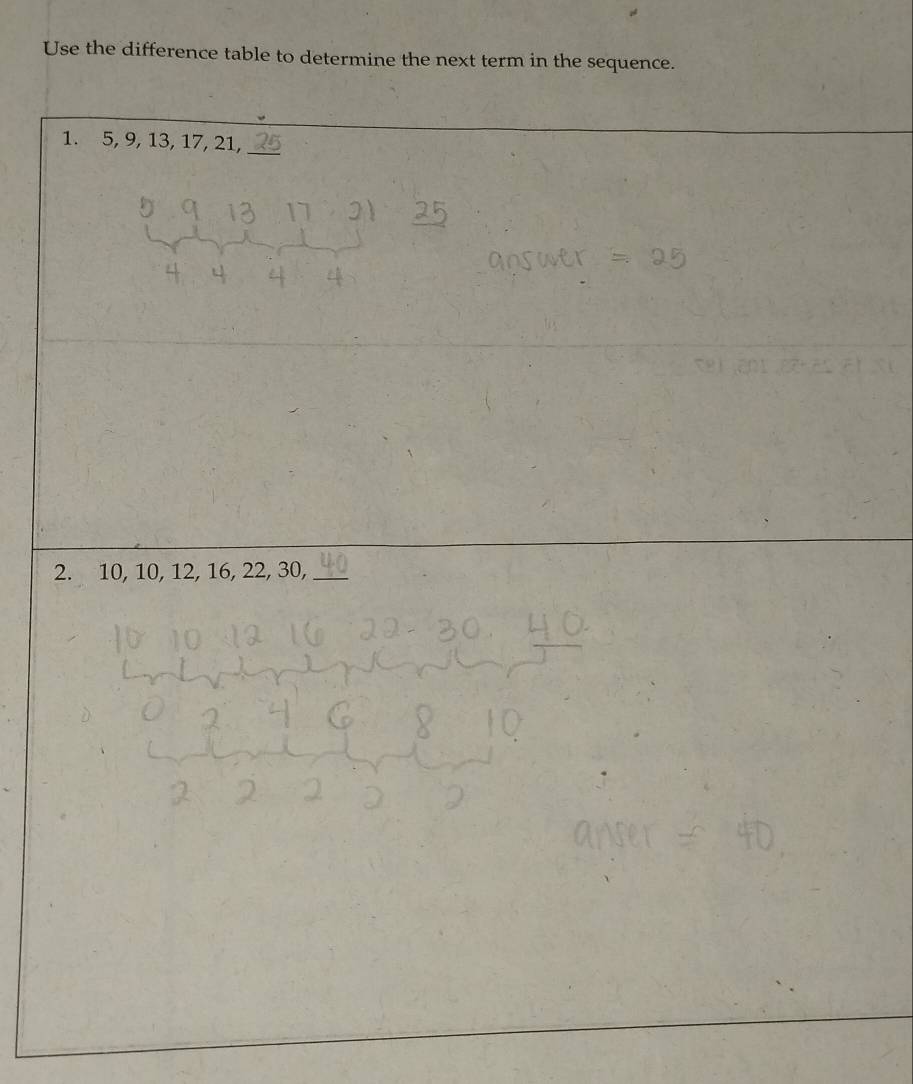 Use the difference table to determine the next term in the sequence.
1. 5, 9, 13, 17, 21, 25
5 9 13 17 21 25
4 4 4 4
answer = 25
2. 10, 10, 12, 16, 22, 30, 40
10 10 12 16 22 30 40
0 2 4 6 8 10
2 2 2 2 2
anser = 40